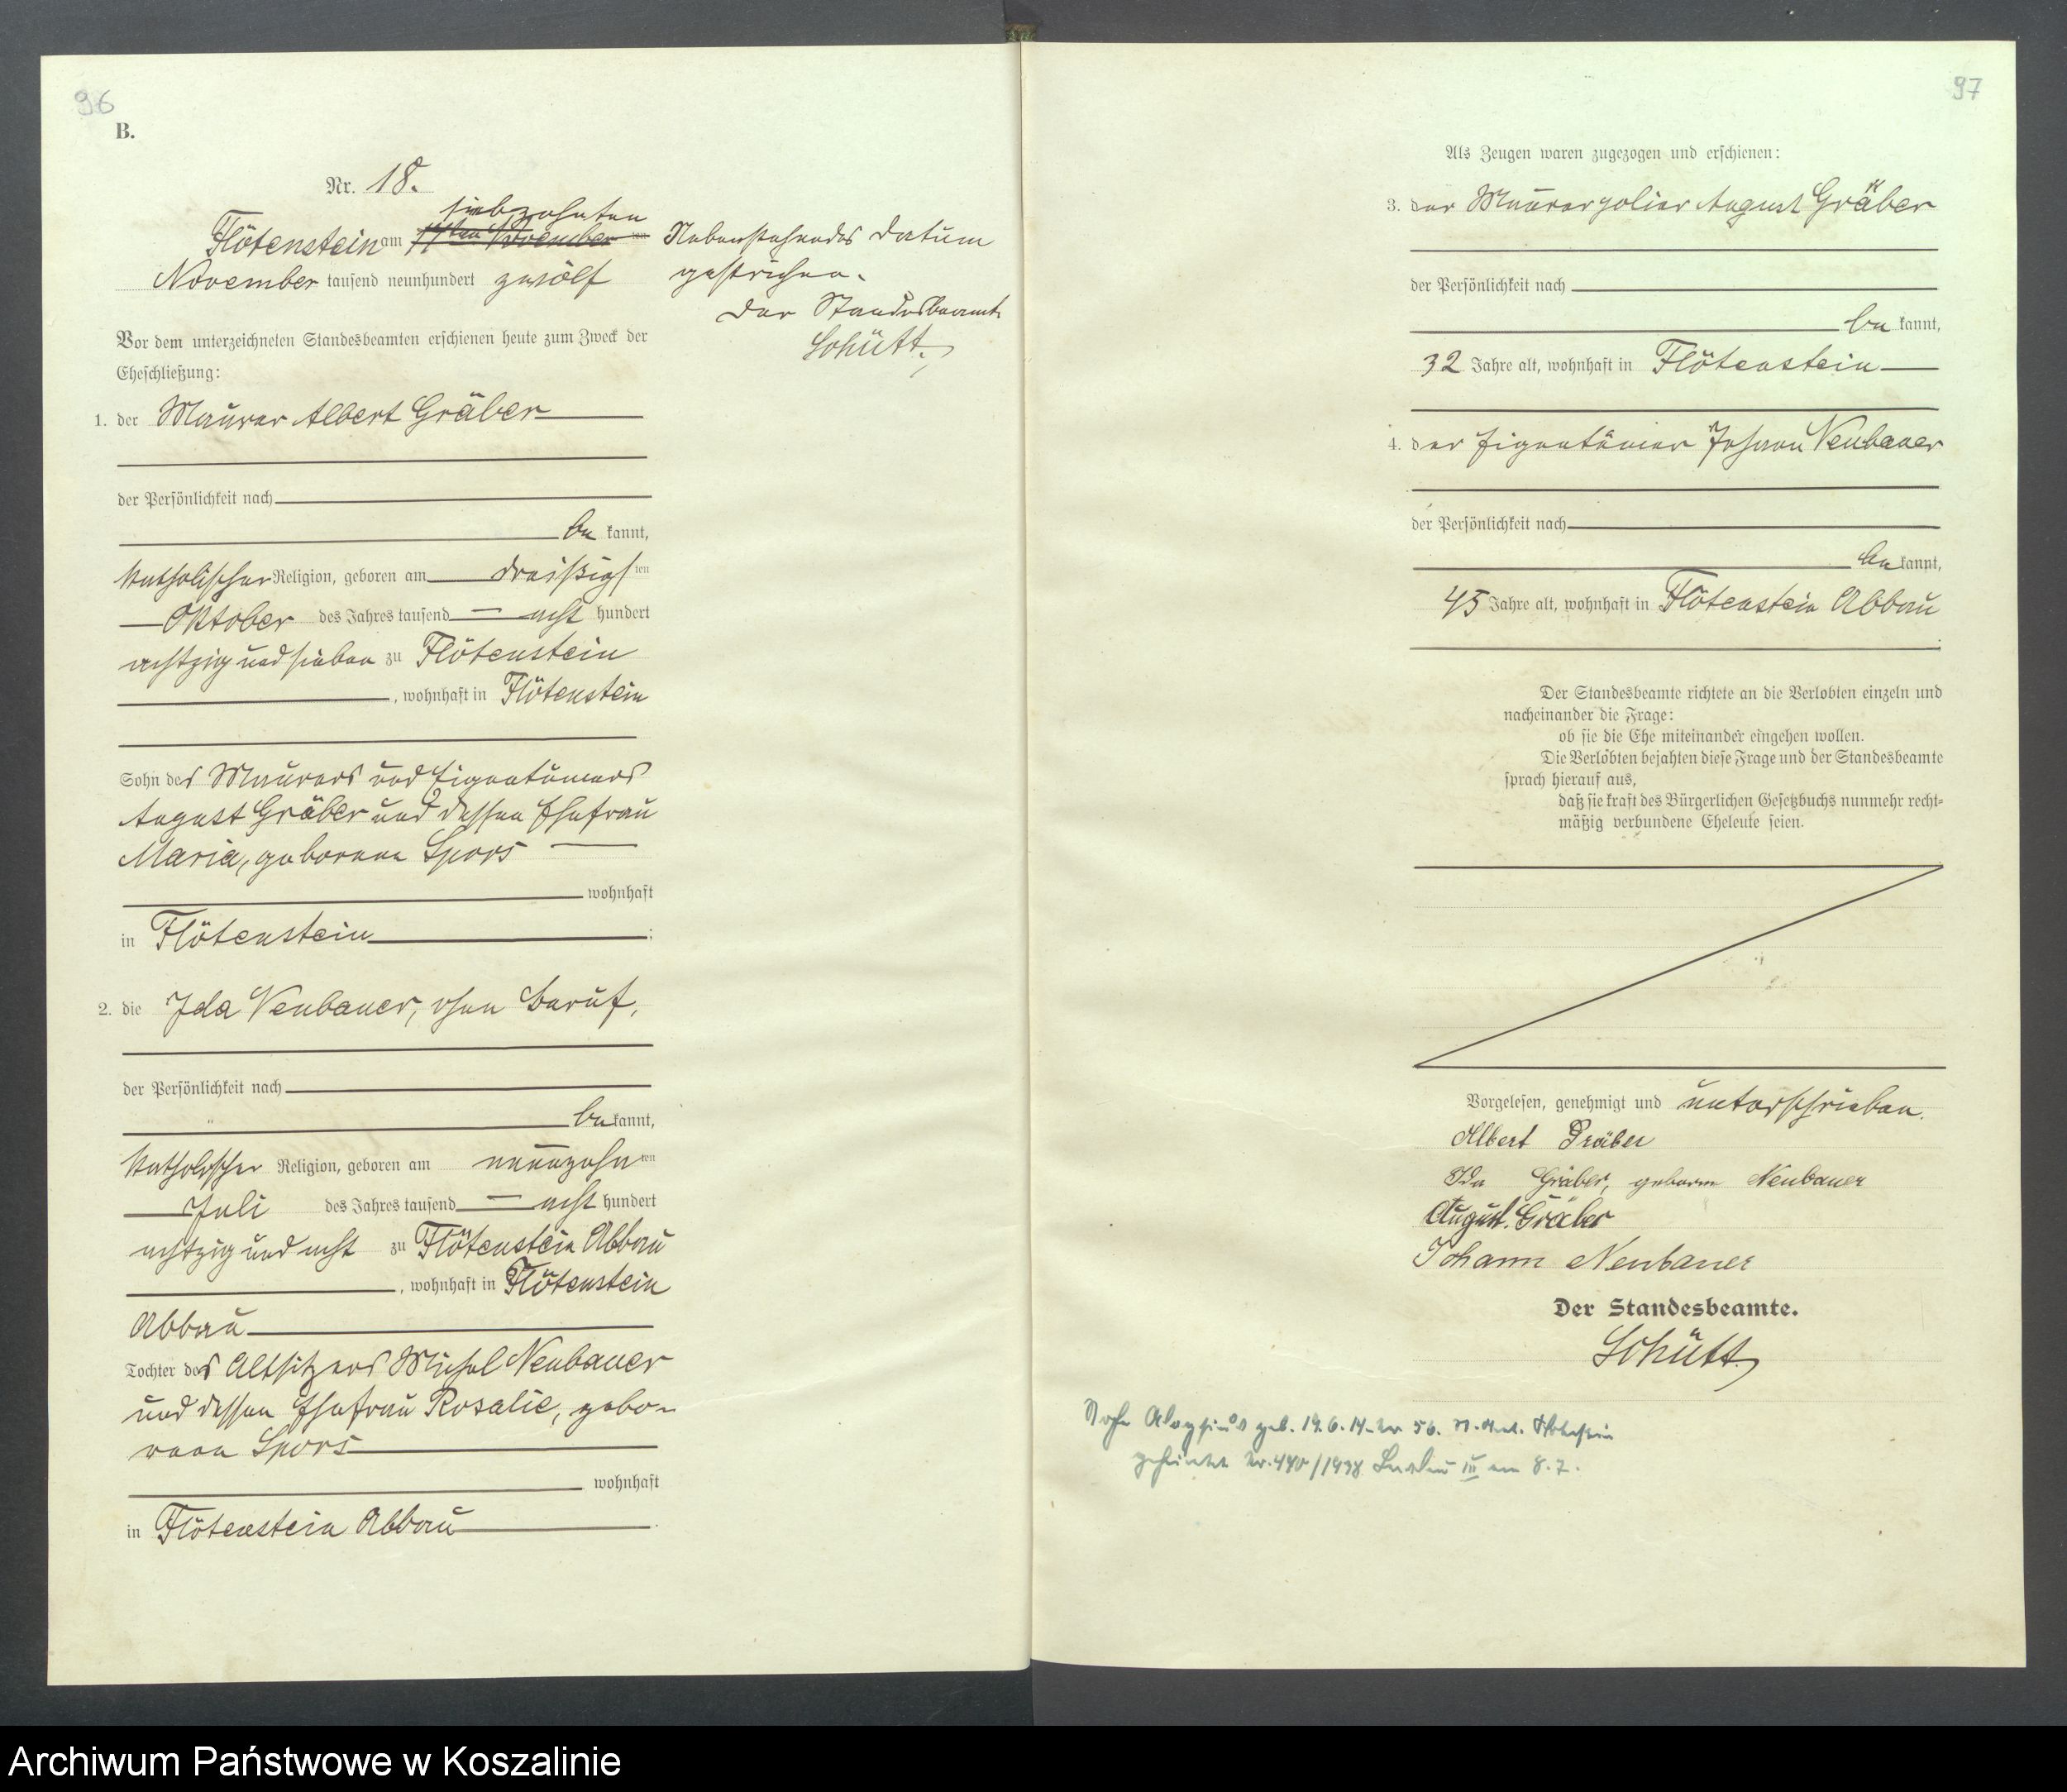 96
B.
Nr. 18.
siebzehnten
Flötenstein am 17ten November ten
November tausend neunhundert zwölf
Nebenstehendes Datum
gestrichen.
Der Standesbeamte
Schütt.
Vor dem unterzeichneten Standesbeamten erschienen heute zum Zweck der
Eheschließung:
1. der Maurer Albert Gräber
der Persönlichkeit nach
be kannt,
katholischer Religion, geboren am dreißigsten
Oktober des Jahres tausend acht hundert
achtzig und sieben zu Flötenstein
, wohnhaft in Flötenstein
Sohn des Maurers und Eigentümers
August Gräber und dessen Ehefrau
Maria, geborene Spors
wohnhaft
in Flötenstein ;
2. die Ida Neubauer, ohne Beruf,
der Persönlichkeit nach
be kannt,
katholischer Religion, geboren am neunzehnten
Juli des Jahres tausend acht hundert
achtzig und acht zu Flötenstein Abbau
, wohnhaft in Flötenstein
Abbau
Tochter des Altsitzers Michel Neubauer
und dessen Ehefrau Rosalie, gebo-
rene Spors
wohnhaft
in Flötenstein Abbau .
97
Als Zeugen waren zugezogen und erschienen:
3. der Maurerpolier August Gräber
der Persönlichkeit nach
be kannt,
32 Jahre alt, wohnhaft in Flötenstein
4. der Eigentümer Johann Neubauer
der Persönlichkeit nach
be kannt,
45 Jahre alt, wohnhaft in Flötenstein Abbau
.
Der Standesbeamte richtete an die Verlobten einzeln und
nacheinander die Frage:
ob sie die Ehe miteinander eingehen wollen.
Die Verlobten bejahten diese Frage und der Standesbeamte
sprach hierauf aus,
daß sie kraft des Bürgerlichen Gesetzbuchs nunmehr recht-
mäßig verbundene Eheleute seien.
Vorgelesen, genehmigt und unterschrieben.
Albert Gräber
Ida Gräber, geborene Neubauer
August Gräber
Johann Neubauer
Der Standesbeamte.
Schütt
Aloysius geb. 19.6.14. Nr 56.
Nr. 440/1938 III am 8.7.
Archiwum Państwowe w Koszalinie